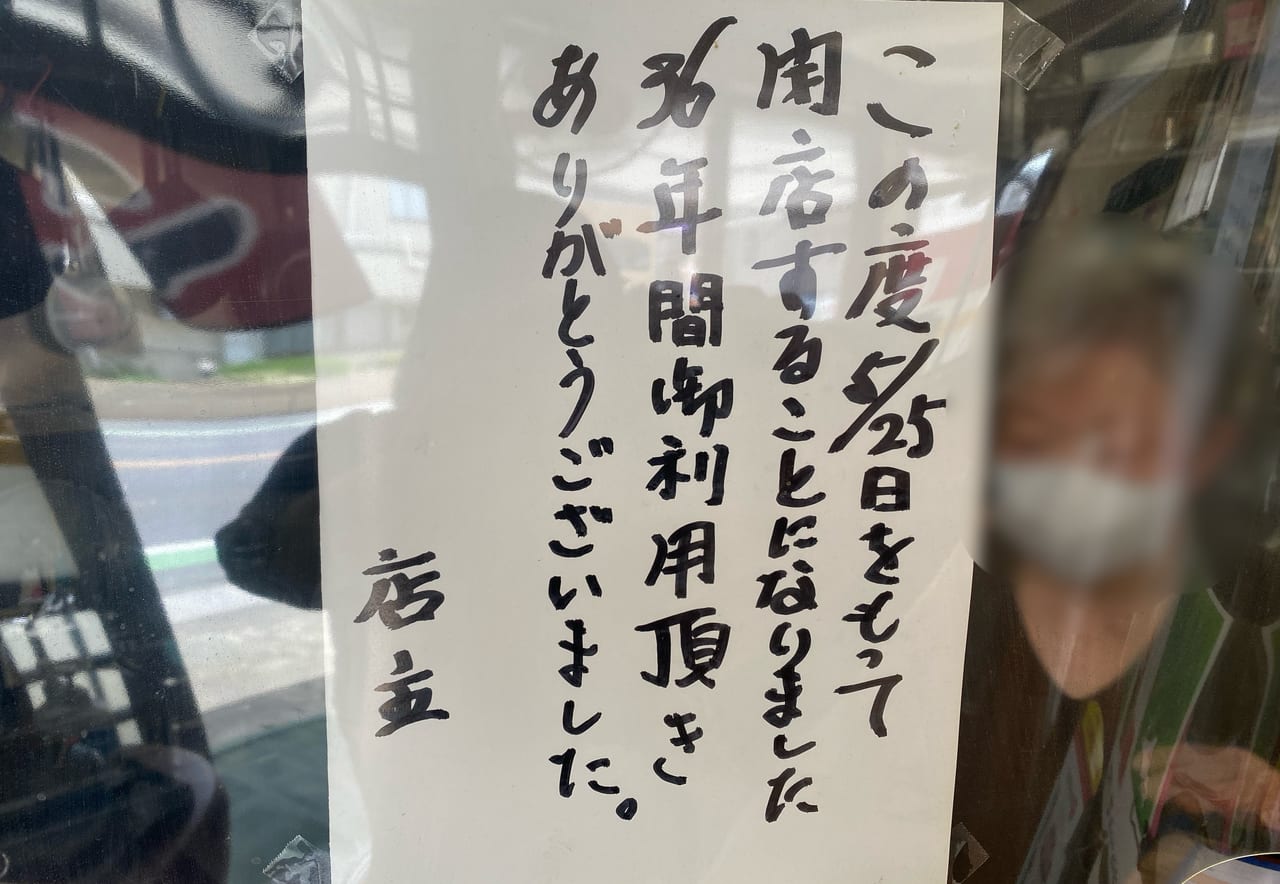 この度5/25日をもって
閉店することになりました
36年間御利用頂き
ありがとうございました。
店主